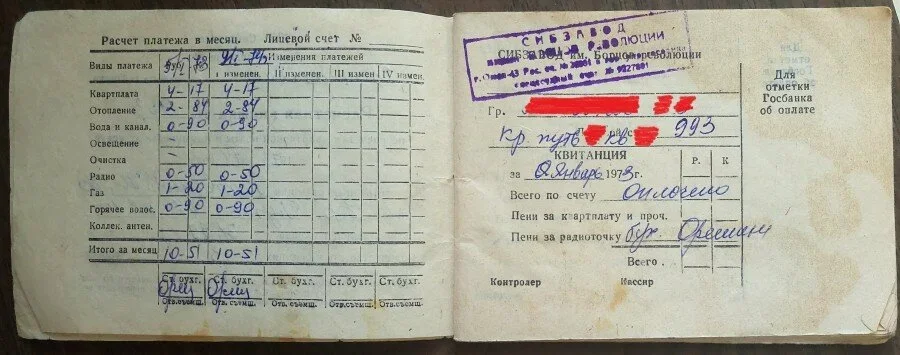 Расчет платежа в месяц. Лицевой счет №
Виды платежа 73 I изменен. Изменения платежей II изменен III измен IV измен.
Квартплата 4-17 4-17
Отопление 2-84 2-84
Вода и канал. 0-90 0-90
Освещение –
Очистка –
Радио 0-50 0-50
Газ 1-20 1-20
Горячее водос. 0-90 0-90
Коллек. антен.
Итого за месяц 10-51 10-51
Ст. бухг. Ст. бухг. Ст. бухг. Ст. бухг. Ст. бухг.
Отв.съемщ. Отв.съемщ. Отв.съемщ. Отв.съемщ. Отв.съемщ.
СИБЗАВОД
РЕВОЛЮЦИИ
СИБЗАВОД им. Борцов революции
Гр.
Кр. путь кв 993
КВИТАНЦИЯ Р. К
за Январь 1973г.
Всего по счету оплачено
Пени за квартплату и проч.
Пени за радиоточку бух.
Всего
Контролер Кассир
Для
отметки
Госбанка
об оплате